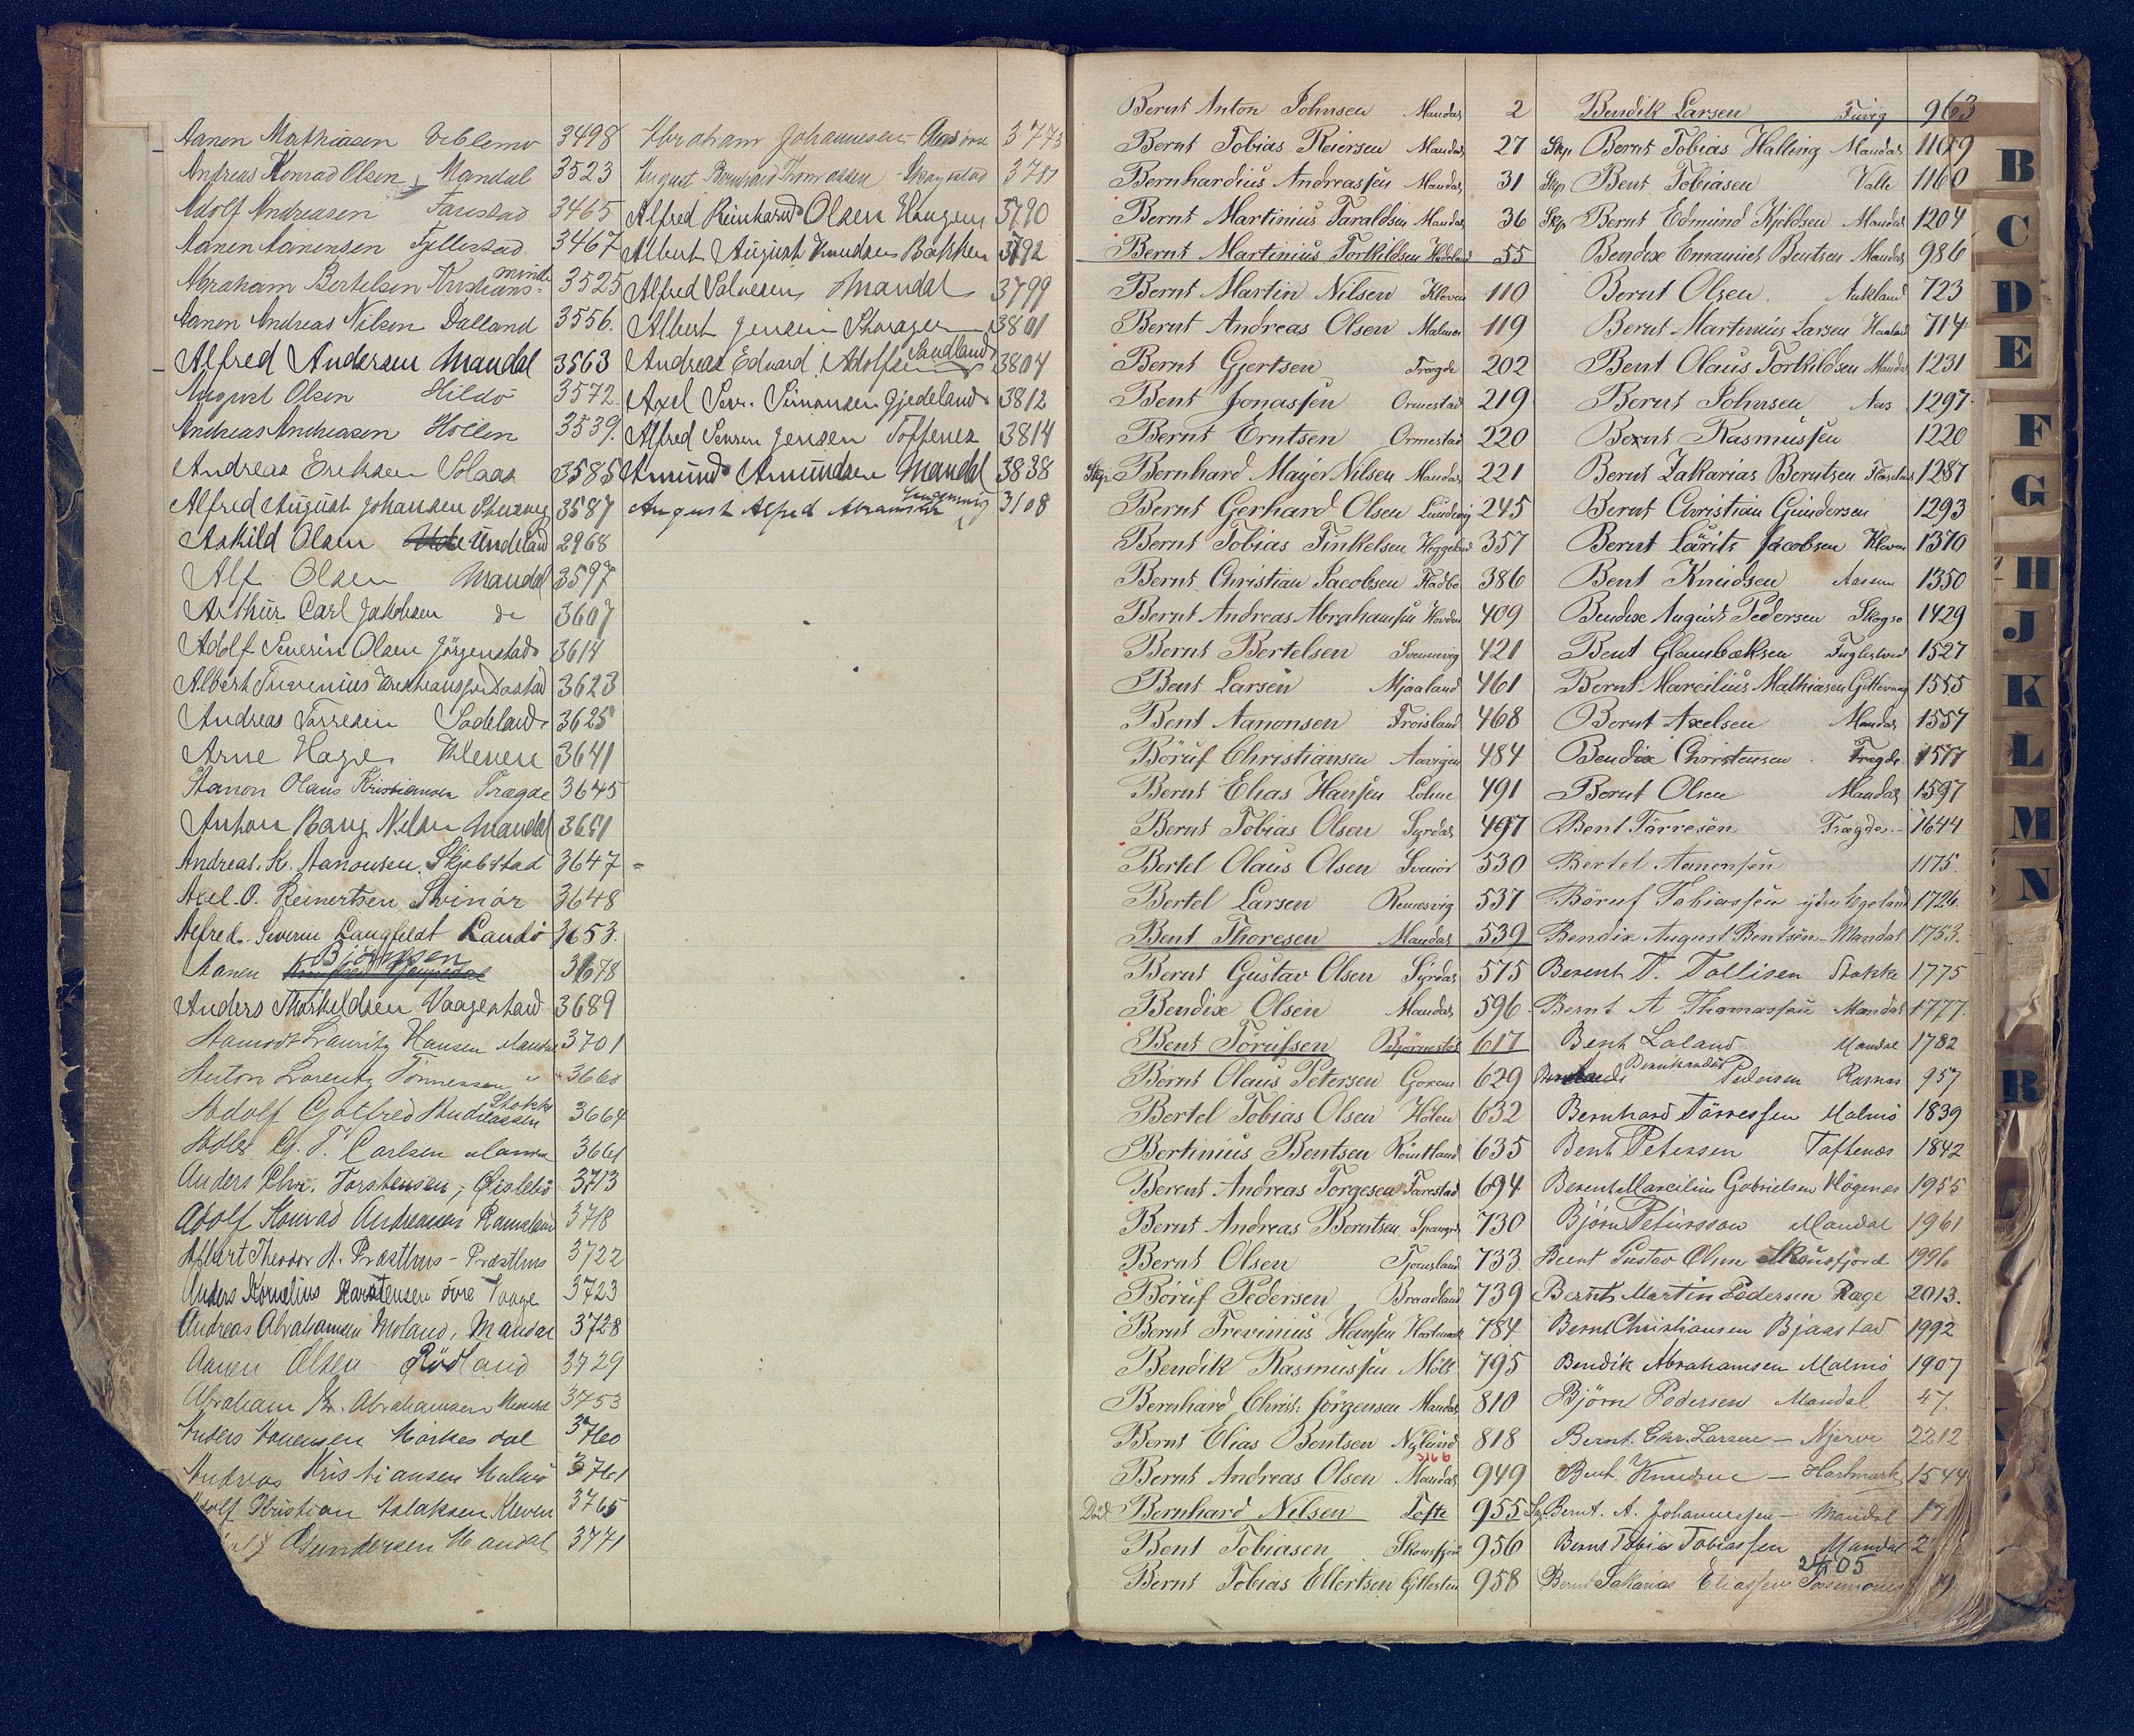 Aanen Mathiasen Viblemo 3498
Andreas Konrad Olsen, Mandal 3523
Adolf Andreasen Farestad 3465
Aanen Aanensen Fjellestad 3467
Abraham Bertelsen Kristiansmind 3525
Aanen Andreas Nilsen Dalland 3556.
Alfred Andersen Mandal 3563
August Olsen Hildø 3572
Andreas Andreasen Hollen 3539.
Andreas Eriksen Solaas 3585
Alfred August Johansen 3587
Askild Olsen Undeland 2968
Alf Olsen Mandal 3597
Arthur Carl Jakobsen do 3607
Adolf Severin Olsen Jörgenstad 3614
Albert Trevenius 3623
Andreas Tørresen Sodeland 3625
Arne Hage Kleven 3641
Aanon Olaus Kristiansen Trægde 3645
Anton Bang Nilsen Mandal 3651
Andreas. K. Aanonsen. Skjebstad 3647
Axel. O. Reinertsen Svinör 3648
Alfred. Severin Langfeldt Landö 3653.
Aanen Björnsen 3678
Anders Thorkeldsen Vaagestad 3689
Lauritz Hansen Mandal 3701
Anton Lorentz Tönnessen " 3660
Adolf Gotfred Andreassen Stokke 3664
Carlsen 3661
Anders Chr. Torstensen, Øislebö 3713
Adolf Konrad Andreasen 3718
Albert Theodor A. Præsthus - Præsthus 3722
Anders Kornelius Karstensen övre Vaage 3723
Andreas Abrahamsen Moland, Mandal 3728
Aanen Olsen Rödland 3729
Abraham Kr. Abrahamsen 3753
Anders Aanensen Mörkesdal 3760
Andreas Kristiansen Malmö 3761
Adolf Kristian Aslaksen Kleven 3765
Gundersen Mandal 3771
Abraham Johannesen 3773
August Bernhard Thomassen 3781
Alfred Reinhard Olsen Haugen 3790
Albert August Knudsen Bakken 3792
Alfred Salvesen Mandal 3799
Albert Jensen 3801
Andreas Edvard Adolfsen Sandland 3804
Axel Sev. Simonsen Gjedeland 3812
Alfred Jensen Toftenes 3814
Amund Amundsen Mandal 3838
August Alfred Abramsen 3108
Bernt Anton Johnsen Mandal 2
Bernt Tobias Reiersen Mandal 27
Bernhardius Andreassen Mandal 31
Bernt Martinius Taraldsen Mandal 36
Bernt Martinius Torkildsen 55
Bernt Martin Nilsen Kleven 110
Bernt Andreas Olsen Malmø 119
Bernt Gjertsen Trægde 202
Bent Jonassen Ormestad 219
Bernt Erntsen Ormestad 220
Skp. Bernhard Mayer Nilsen Mandal 221
Bernt Gerhard Olsen Lundevig 245
Bernt Tobias Finkelsen Heggelund 357
Bernt Christian Jacobsen 386
Bernt Andreas Abrahamsen 409
Bernt Bertelsen Svennevig 421
Bent Larsen Mjaaland 461
Bent Aanonsen Froisland 468
Böruf Christiansen Aavigen 484
Bernt Elias Hansen Lohne 491
Bernt Tobias Olsen Syrdal 497
Bertel Olaus Olsen Svinör 530
Bertel Larsen Remesvig 537
Bent Thoresen Mandal 539
Bernt Gustav Olsen Syrdal 575
Bendix Olsen Mandal 596
Bent Törufsen Bjørnestad 617
Bernt Olaus Petersen 629
Bertel Tobias Olsen Holen 632
Bertinius Bentsen 635
Berent Andreas Torgesen Farestad 694
Bernt Andreas Berntsen 730
Bernt Olsen Tjomsland 733
Böruf Pedersen Braadland 739
Bernt Trevinius Hansen 784
Bendik Rasmussen 795
Bernhard Christ. Jörgensen Mandal 810
Bernt Elias Bentsen Nyland 818
Bernt Andreas Olsen Mandal 949
Död Bernhard Nilsen Tofte 955
Bent Tobiasen Skousfjord 956
Bernt Tobias Ellertsen 958
Bendik Larsen Fuvig 963
Skp. Bernt Tobias Halling Mandal 1109
Skp. Bent Tobiasen Valle 1160
Skp. Bernt Edmund Kjeldsen Mandal 1204
Bendix Emanuel Bentsen Mandal 986
Bernt Olsen Aukland 723
Bernt Martinius Larsen 714
Bent Olaus Torkildsen Mandal 1231
Bernt Johnsen Aas 1297
Bernt Rasmussen 1220
Bernt Zakarias Berntsen 1287
Bernt Christian Gundersen 1293
Bernt Lauritz Jacobsen Kleven 1370
Bent Knudsen 1350
Bendix August Pedersen Skogsø 1429
Bent Glambæksen 1527
Bernt Marcilius Mathiasen 1555
Bernt Axelsen Mandal 1557
Bendix Christensen Trægde 1577
Bernt Olsen Mandal 1597
Bent Tørresen Trægde 1644
Bertel Aanensen 1175
Böruf Tobiassen ydre Egeland 1726.
Bendix August Bentsen - Mandal 1753.
Berent T. Tollisen Stokke 1775
Bernt A Thomassen Mandal 1777.
Bent Laland Mandal 1782
Bernhardus Pedersen Rasnas 957
Bernhard Tørressen Malmö 1839
Bent Petersen Toftenes 1842
Berent Marcilius Gabrielsen Högenes 1955
Björn Petursson Mandal 1961
Bernt Gustav Olsen Skousfjord 1996
Bernt Martin Pedersen Rage 2013.
Bernt Christiansen Bjaastad 1992
Bendik Abrahamsen Malmö 1907
Björn Pedersen Mandal 47.
Bernt. Chr. Larsen - Njerve 2212
Bent. Knudsen - Hartmark 1544
Bernt. A. Johannessen - Mandal
Bernt Tobias Tobiassen Mandal
2405
Bernt Sakarias Eliassen
B
C
D
E
F
G
H
J
K
L
M
N
R